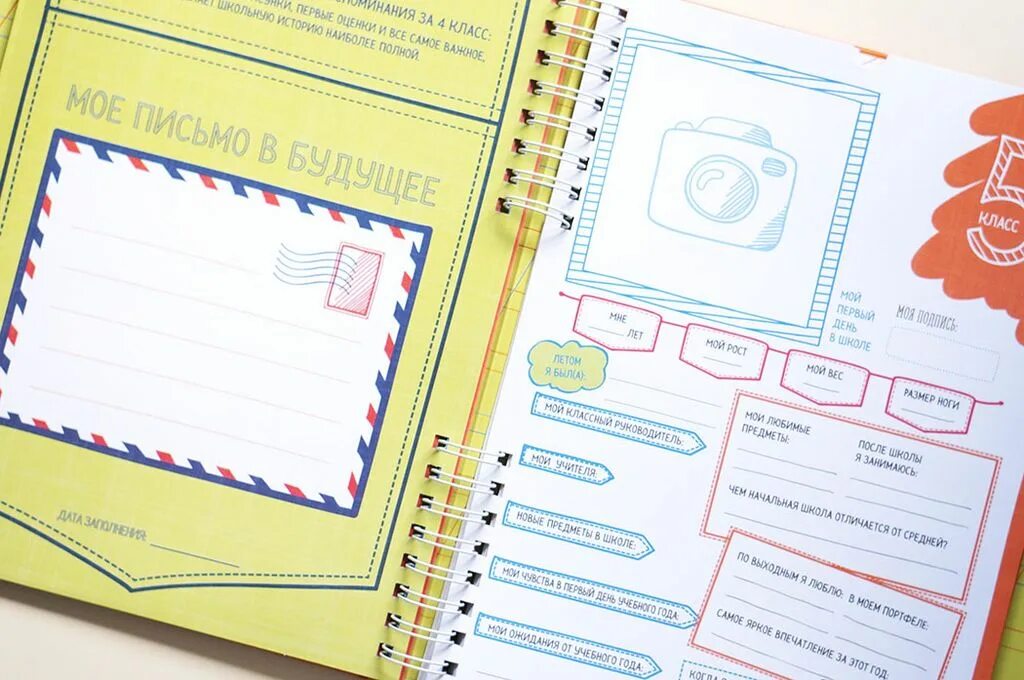 ПОМИНАНИЯ ЗА 4 КЛАСС:
ПЕРВЫЕ ОЦЕНКИ И ВСЕ САМОЕ ВАЖНОЕ,
ШКОЛЬНУЮ ИСТОРИЮ НАИБОЛЕЕ ПОЛНОЙ.
МОЕ ПИСЬМО В БУДУЩЕЕ
ДАТА ЗАПОЛНЕНИЯ:
5
КЛАСС
МОЙ
ПЕРВЫЙ
ДЕНЬ
В ШКОЛЕ
МОЯ ПОДПИСЬ:
МНЕ
ЛЕТ
МОЙ РОСТ
МОЙ ВЕС
РАЗМЕР НОГИ
ЛЕТОМ
Я БЫЛ(А):
МОЙ КЛАССНЫЙ РУКОВОДИТЕЛЬ:
МОИ УЧИТЕЛЯ:
НОВЫЕ ПРЕДМЕТЫ В ШКОЛЕ:
МОИ ЧУВСТВА В ПЕРВЫЙ ДЕНЬ УЧЕБНОГО ГОДА:
МОИ ОЖИДАНИЯ ОТ УЧЕБНОГО ГОДА:
МОИ ЛЮБИМЫЕ
ПРЕДМЕТЫ:
ПОСЛЕ ШКОЛЫ
Я ЗАНИМАЮСЬ:
ЧЕМ НАЧАЛЬНАЯ ШКОЛА ОТЛИЧАЕТСЯ ОТ СРЕДНЕЙ?
ПО ВЫХОДНЫМ Я ЛЮБЛЮ:
В МОЕМ ПОРТФЕЛЕ:
САМОЕ ЯРКОЕ ВПЕЧАТЛЕНИЕ ЗА ЭТОТ ГОД:
КОГДА